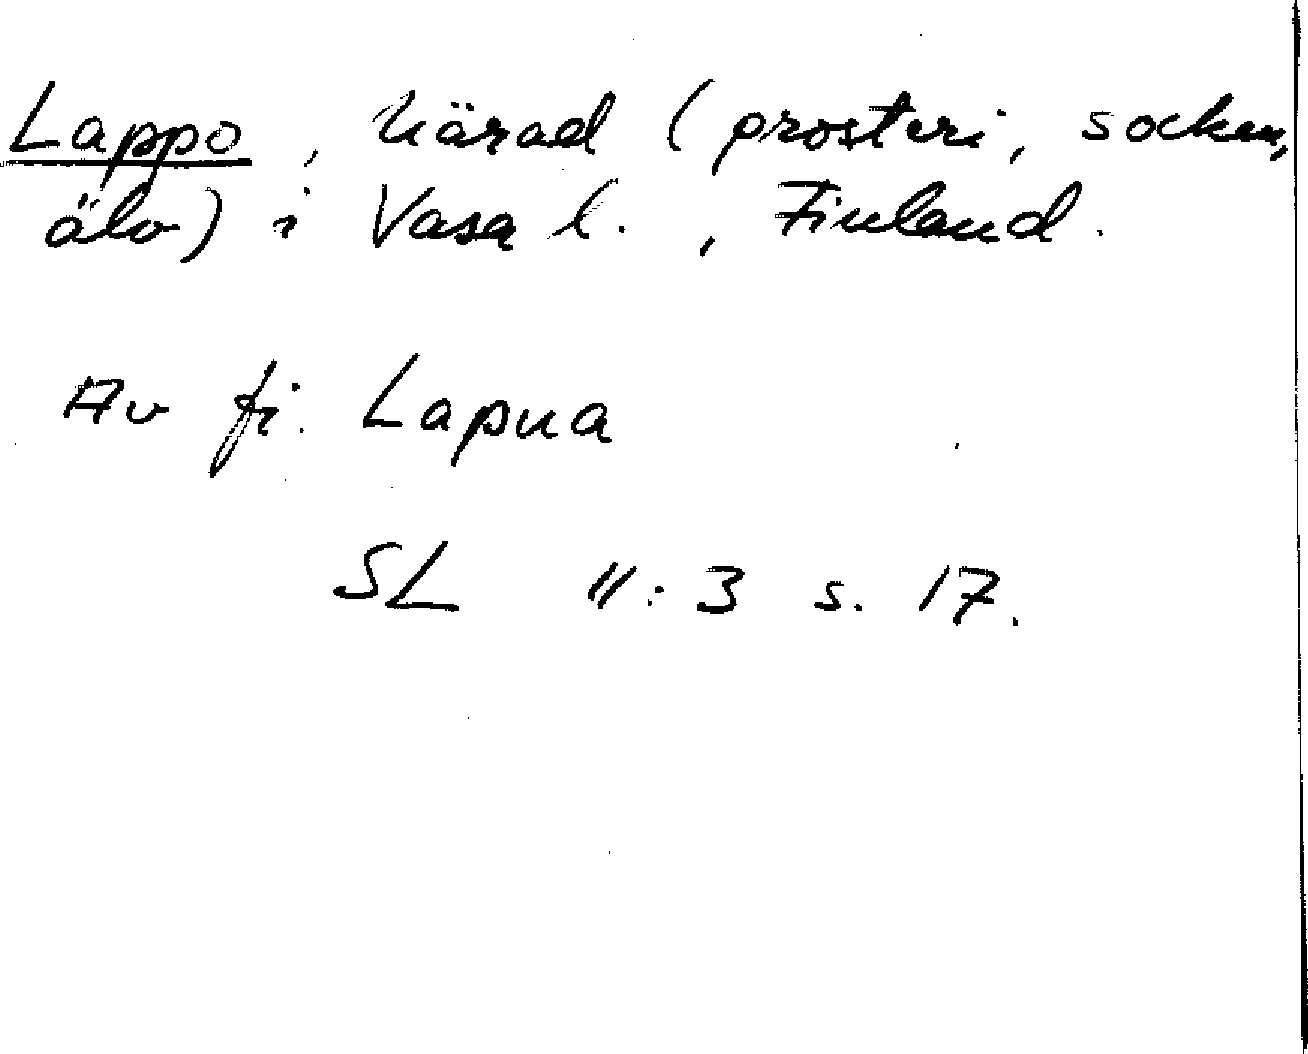 Lappo, härad (prosteri, socken,
älv) i Vasa l., Finland.
Av fi. Lapua
SL II:3 s. 17.